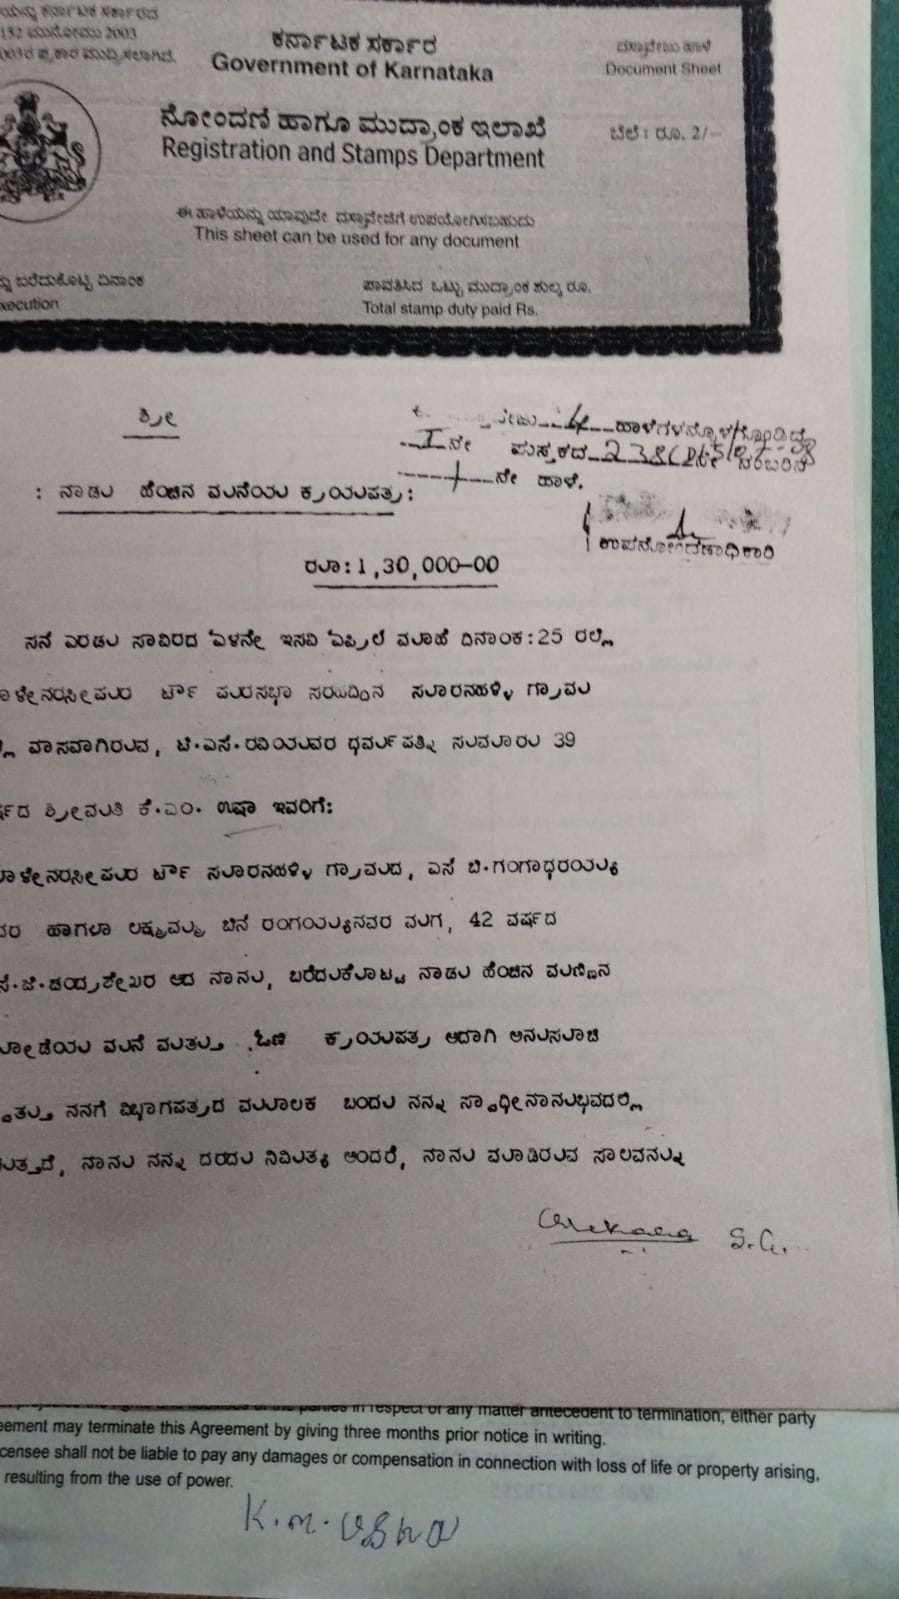 ಯನ್ನು ಕರ್ನಾಟಕ ಸರ್ಕಾರದ
152 ಮುನೋಮು 2003
003ರ ಪ್ರಕಾರ ಮುದ್ರಿಸಲಾಗಿದೆ.
ಕರ್ನಾಟಕ ಸರ್ಕಾರ
Government of Karnataka
ದಸ್ತಾವೇಜು ಹಾಳೆ
Document Sheet
ನೋಂದಣಿ ಹಾಗೂ ಮುದ್ರಾಂಕ ಇಲಾಖೆ
Registration and Stamps Department
ಬೆಲೆ : ರೂ. 2/-
ಈ ಹಾಳೆಯನ್ನು ಯಾವುದೇ ದಸ್ತಾವೇಜಿಗೆ ಉಪಯೋಗಿಸಬಹುದು
This sheet can be used for any document
ನ್ನು ಬರೆದುಕೊಟ್ಟ ದಿನಾಂಕ
xecution
ಪಾವತಿಸಿದ ಒಟ್ಟು ಮುದ್ರಾಂಕ ಶುಲ್ಕ ರೂ.
Total stamp duty paid Rs.
ಶ್ರೀ
4 ಹಾಳೆಗಳನ್ನೊಳಗೊಂಡಿದ್ದ
I ನೇ ಪುಸ್ತಕದ 238 ನಂಬರಿನ
ನೇ ಹಾಳೆ.
: ನಾಡು ಹೆಂಚಿನ ಮನೆಯ ಕ್ರಯಪತ್ರ:
ಉಪನೋಂದಣಾಧಿಕಾರಿ
ರೂ:1,30,000-00
ಸನೆ ಎರಡು ಸಾವಿರದ ಏಳನೇ ಇಸವಿ ಏಪ್ರಿಲ್ ಮಾಹೆ ದಿನಾಂಕ:25 ರಲ್ಲಿ
ಳೇನರಸೀಪುರ ಟೌನ್ ಪುರಸಭಾ ಸರಹದ್ದಿನ ಸೂರನಹಳ್ಳಿ ಗ್ರಾಮ
ಲ್ಲಿ ವಾಸವಾಗಿರುವ, ಟಿ.ಎಸ್.ರವಿಯವರ ಧರ್ಮಪತ್ನಿ ಸುಮಾರು 39
ರ್ಷದ ಶ್ರೀಮತಿ ಕೆ.ಎಂ. ಉಷಾ ಇವರಿಗೆ:
ಳೇನರಸೀಪುರ ಟೌನ್ ಸೂರನಹಳ್ಳಿ ಗ್ರಾಮದ, ಎಸ್ ಬಿ.ಗಂಗಾಧರಯ್ಯ
ವರ ಹಾಗೂ ಲಕ್ಷ್ಮಮ್ಮ ಬಿನ್ ರಂಗಯ್ಯನವರ ಮಗ, 42 ವರ್ಷದ
ಸ್.ಜಿ.ಚಂದ್ರಶೇಖರ ಆದ ನಾನು, ಬರೆದುಕೊಟ್ಟ ನಾಡು ಹೆಂಚಿನ ಮಣ್ಣಿನ
ಗೋಡೆಯ ಮನೆ ಮತ್ತು ಓಣಿ ಕ್ರಯಪತ್ರ ಅದಾಗಿ ಅನುಸೂಚಿ
ಸ್ವತ್ತು ನನಗೆ ವಿಭಾಗಪತ್ರದ ಮೂಲಕ ಬಂದು ನನ್ನ ಸ್ವಾಧೀನಾನುಭವದಲ್ಲಿ
ುತ್ತದೆ, ನಾನು ನನ್ನ ದರದು ನಿಮಿತ್ಯ ಅಂದರೆ, ನಾನು ಮಾಡಿರುವ ಸಾಲವನ್ನು
S.G.
the parties in respect of any matter antecedent to termination, either party
eement may terminate this Agreement by giving three months prior notice in writing.
censee shall not be liable to pay any damages or compensation in connection with loss of life or property arising,
resulting from the use of power.
K.M. Usha